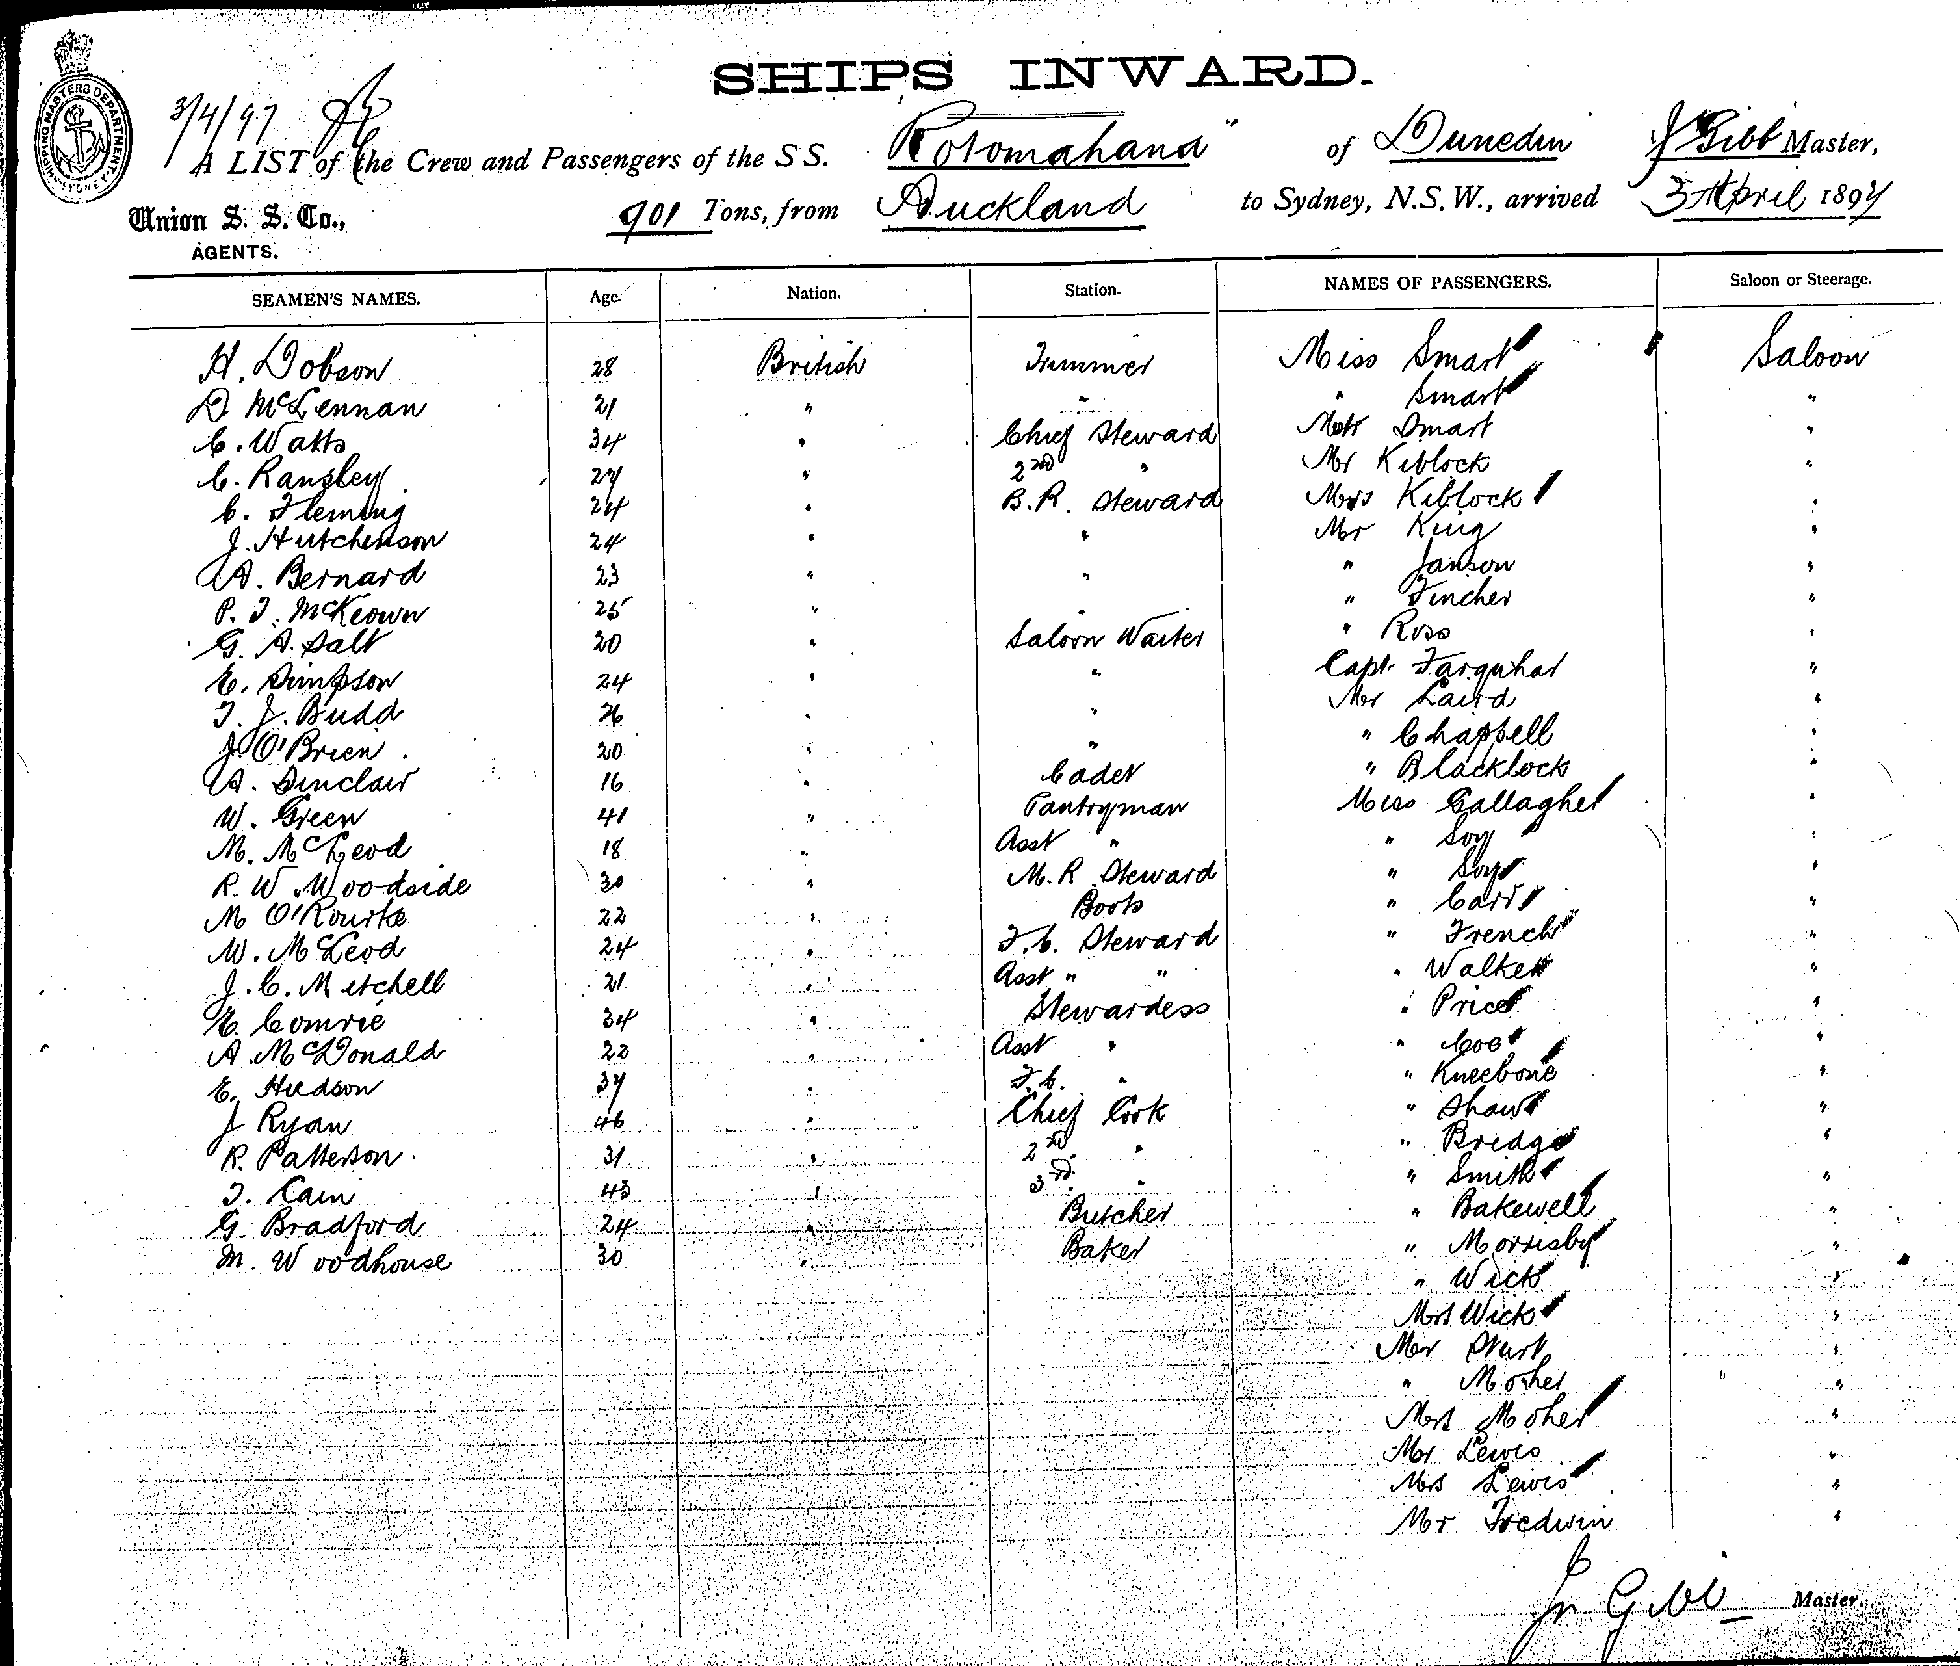 SHIPS INWARD.
3/4/97
A LIST of the Crew and Passengers of the S S. Rotomahana" of Dunedin J Gibb Master,
Union S. S. Co., 901 Tons, from Auckland to Sydney, N.S.W., arrived 3 April 1897
AGENTS.
SEAMEN'S NAMES. Age. Nation. Station. NAMES OF PASSENGERS. Saloon or Steerage.
H. Dobson 28 British Trimmer Miss Smart Saloon
D McLennan 21 " " " Smart "
C. Watts 34 " Chief Steward Smart "
C. Ransley 27 " 2nd " Mr Kiblock "
C. Fleming 24 " B.R. Steward Mrs Kiblock "
J. Hutchinson 24 " " Mr King "
A. Bernard 23 " " " Janson "
P. J. McKeown 25 " " " Fincher "
G. A. Salt 20 " Saloon Waiter " Ross "
E. Simpson 24 " " Capt. Farquhar "
T. J. Budd 26 " " Mr Laird "
J O'Brien 20 " " " Chappell "
A. Sinclair 16 " Cadet " Blacklock "
W. Green 41 " Pantryman Miss Gallagher "
M. McLeod 18 " Asst " " Soy "
R. W. Woodside 30 " M.R. Steward " Soy "
M O'Rourke 22 " Boots " Carr "
W. McLeod 24 " F.C. Steward " French "
J. C. Mitchell 21 " Asst " " " Walker "
E. Comrie 34 " Stewardess " Price "
A. McDonald 22 " Asst " " Coe "
E. Hudson 37 " F.C. " " Kneebone "
J Ryan 46 " Chief Cook " Shaw "
R. Patterson 31 " 2nd " " Bridge "
T. Cain 43 " 3rd. " " Smith "
G. Bradford 24 " Butcher " Bakewell "
M. Woodhouse 30 " Baker " Morrisby "
" Wick "
Mrs Wick "
Mr Sturt "
" Mosher "
Mrs Mosher "
Mr Lewis "
Mrs Lewis "
Mr Tredwin "
Jn Gibb Master.